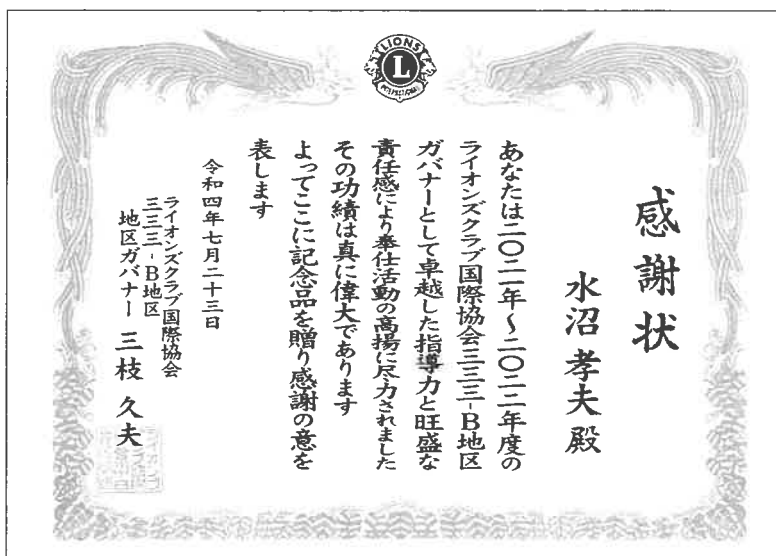 LIONS
L
INTERNATIONAL
感謝状
水沼孝夫殿
あなたは二〇二一年～二〇二二年度の
ライオンズクラブ国際協会三三三-B地区
ガバナーとして卓越した指導力と旺盛な
責任感により奉仕活動の高揚に尽力されました
その功績は真に偉大であります
よってここに記念品を贈り感謝の意を
表します
令和四年七月二十三日
ライオンズクラブ国際協会
三三三-B地区
地区ガバナー 三枝久夫